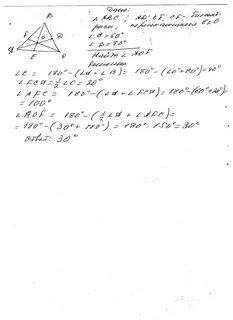 Дано:
△ABC; AD, BE, CF - биссект-
рисы, пересекающиеся в т.О
∠A=60°
∠B=80°
Найти ∠AOF
Решение
∠C = 180° - (∠A + ∠B) = 180° - (60°+80°) = 40°
∠FCA = ½ ∠C = 20°
∠AFC = 180° - (∠A + ∠FCA) = 180° - (60°+20°) =
= 100°
∠AOF = 180° - (½ ∠A + ∠AFC) =
= 180° - (30° + 100°) = 180° - 150° = 30°
Ответ: 30°
B
F
D
O
A
E
C